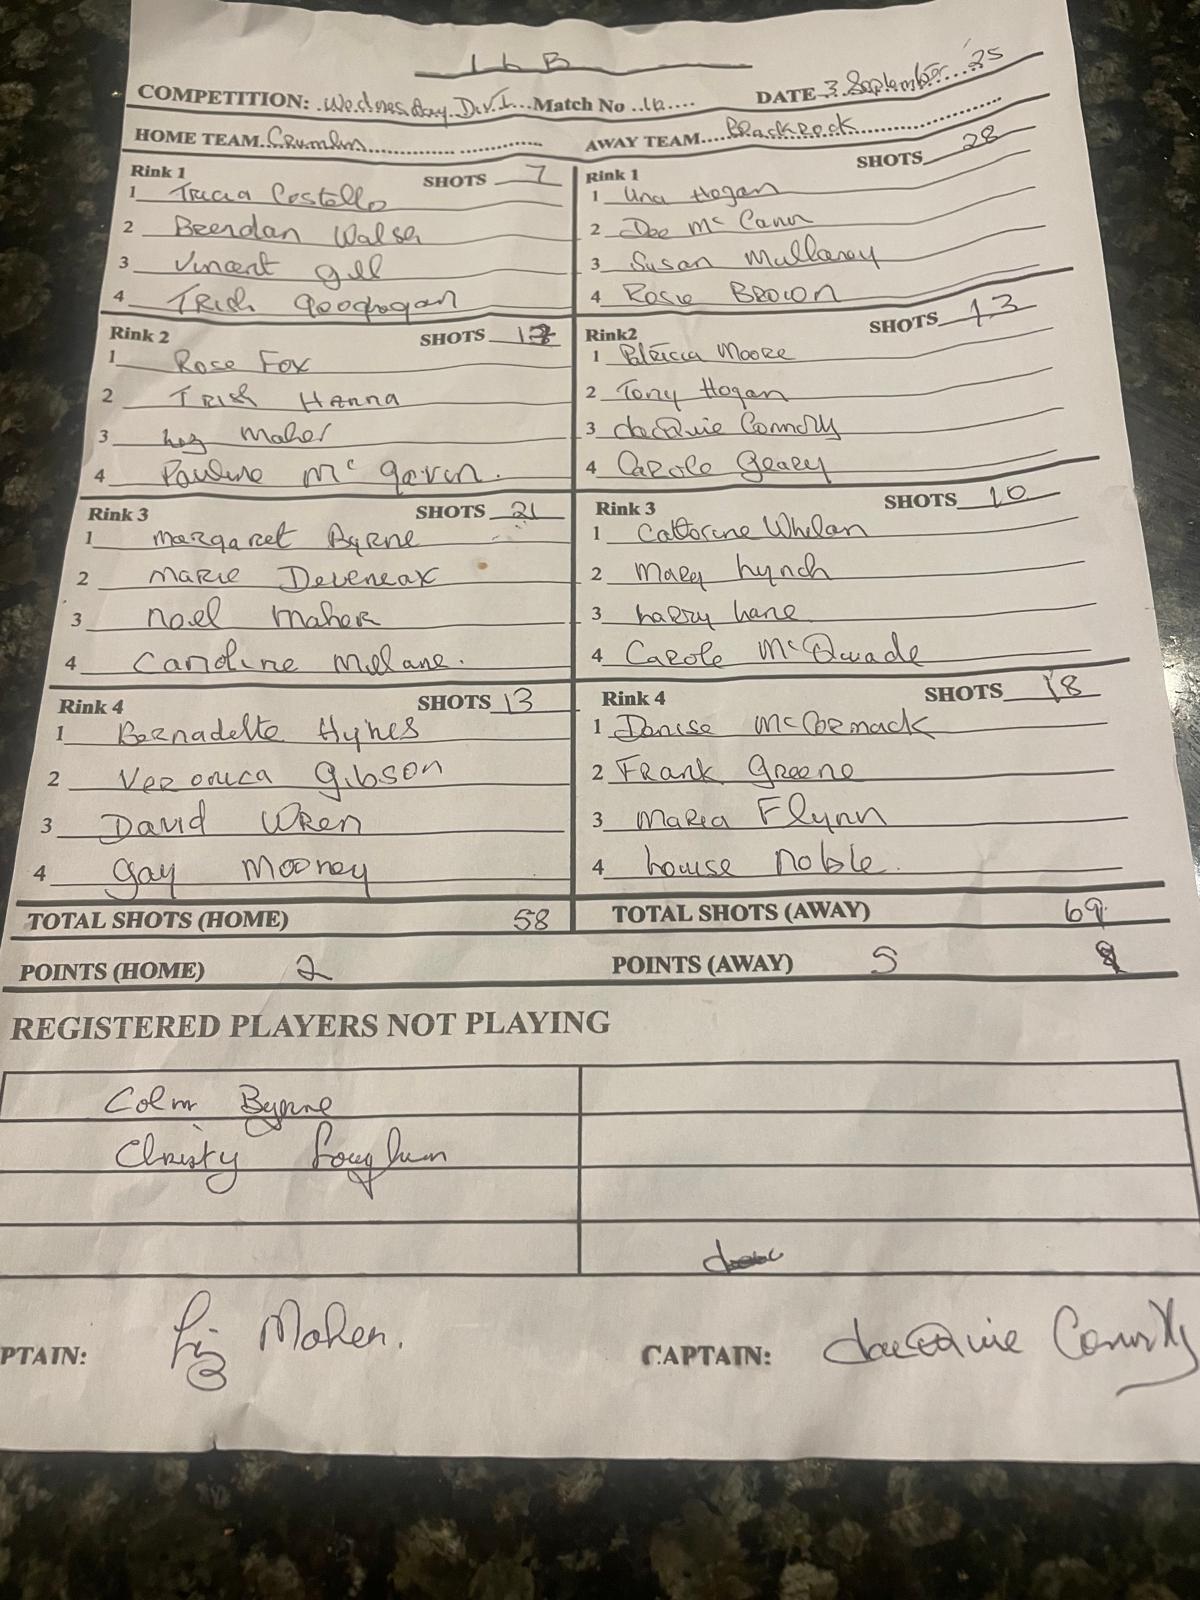 L L B
COMPETITION: Wednesday Div. 1 Match No 12 DATE 3 September 25
HOME TEAM Crumlin AWAY TEAM Blackrock
Rink 1 SHOTS 7
1 Tricia Costello
2 Brendan Walsh
3 Vincent Gill
4 Trish Geoghegan
Rink 2 SHOTS
1 Rose Fox
2 Trish Hanna
3 Liz Maher
4 Pauline Mc Gavin.
Rink 3 SHOTS 21
1 Margaret Byrne
2 Marie Deveneax
3 Noel Maher
4 Caroline Mullane.
Rink 4 SHOTS 13
1 Bernadette Hynes
2 Veronica Gibson
3 David Wren
4 Gay Mooney
TOTAL SHOTS (HOME) 58
POINTS (HOME) 2
Rink 1 SHOTS 28
1 Una Hogan
2 Dee Mc Cann
3 Susan Mullaney
4 Rosie Brown
Rink2 SHOTS 13
1 Patricia Moore
2 Tony Hogan
3 Jacquie Connolly
4 Carole Geary
Rink 3 SHOTS 10
1 Catherine Whelan
2 Mary Lynch
3 Larry Lane
4 Carole McQuade
Rink 4 SHOTS 18
1 Denise McCormack
2 Frank Greene
3 Maria Flynn
4 Louise Noble.
TOTAL SHOTS (AWAY) 69
POINTS (AWAY) 5
REGISTERED PLAYERS NOT PLAYING
Colm Byrne
Christy
PTAIN: Liz Maher.
CAPTAIN: Jacquie Connolly